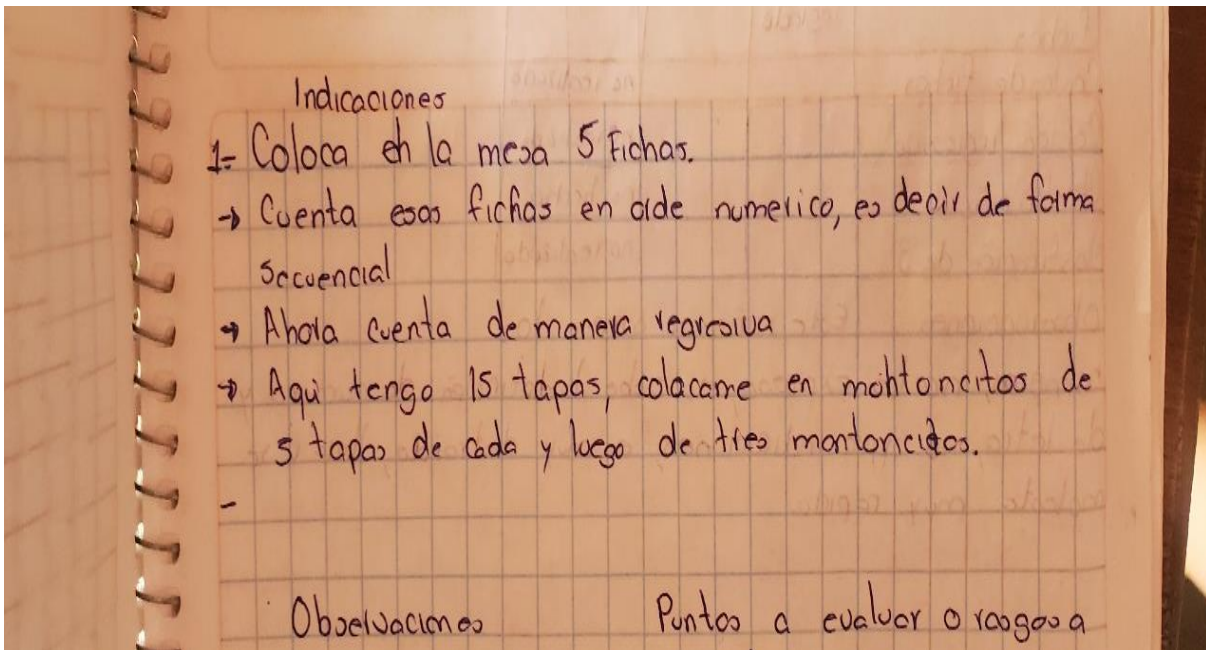 Indicaciones
1- Coloca en la mesa 5 Fichas.
→ Cuenta esas fichas en orde numerico, es decir de forma
secuencial
→ Ahora cuenta de manera regresiva
→ Aqui tengo 15 tapas, colacame en montoncitos de
5 tapas de cada y luego de tres montoncitos.
-
Observaciones Puntos a evaluar o rasgos a